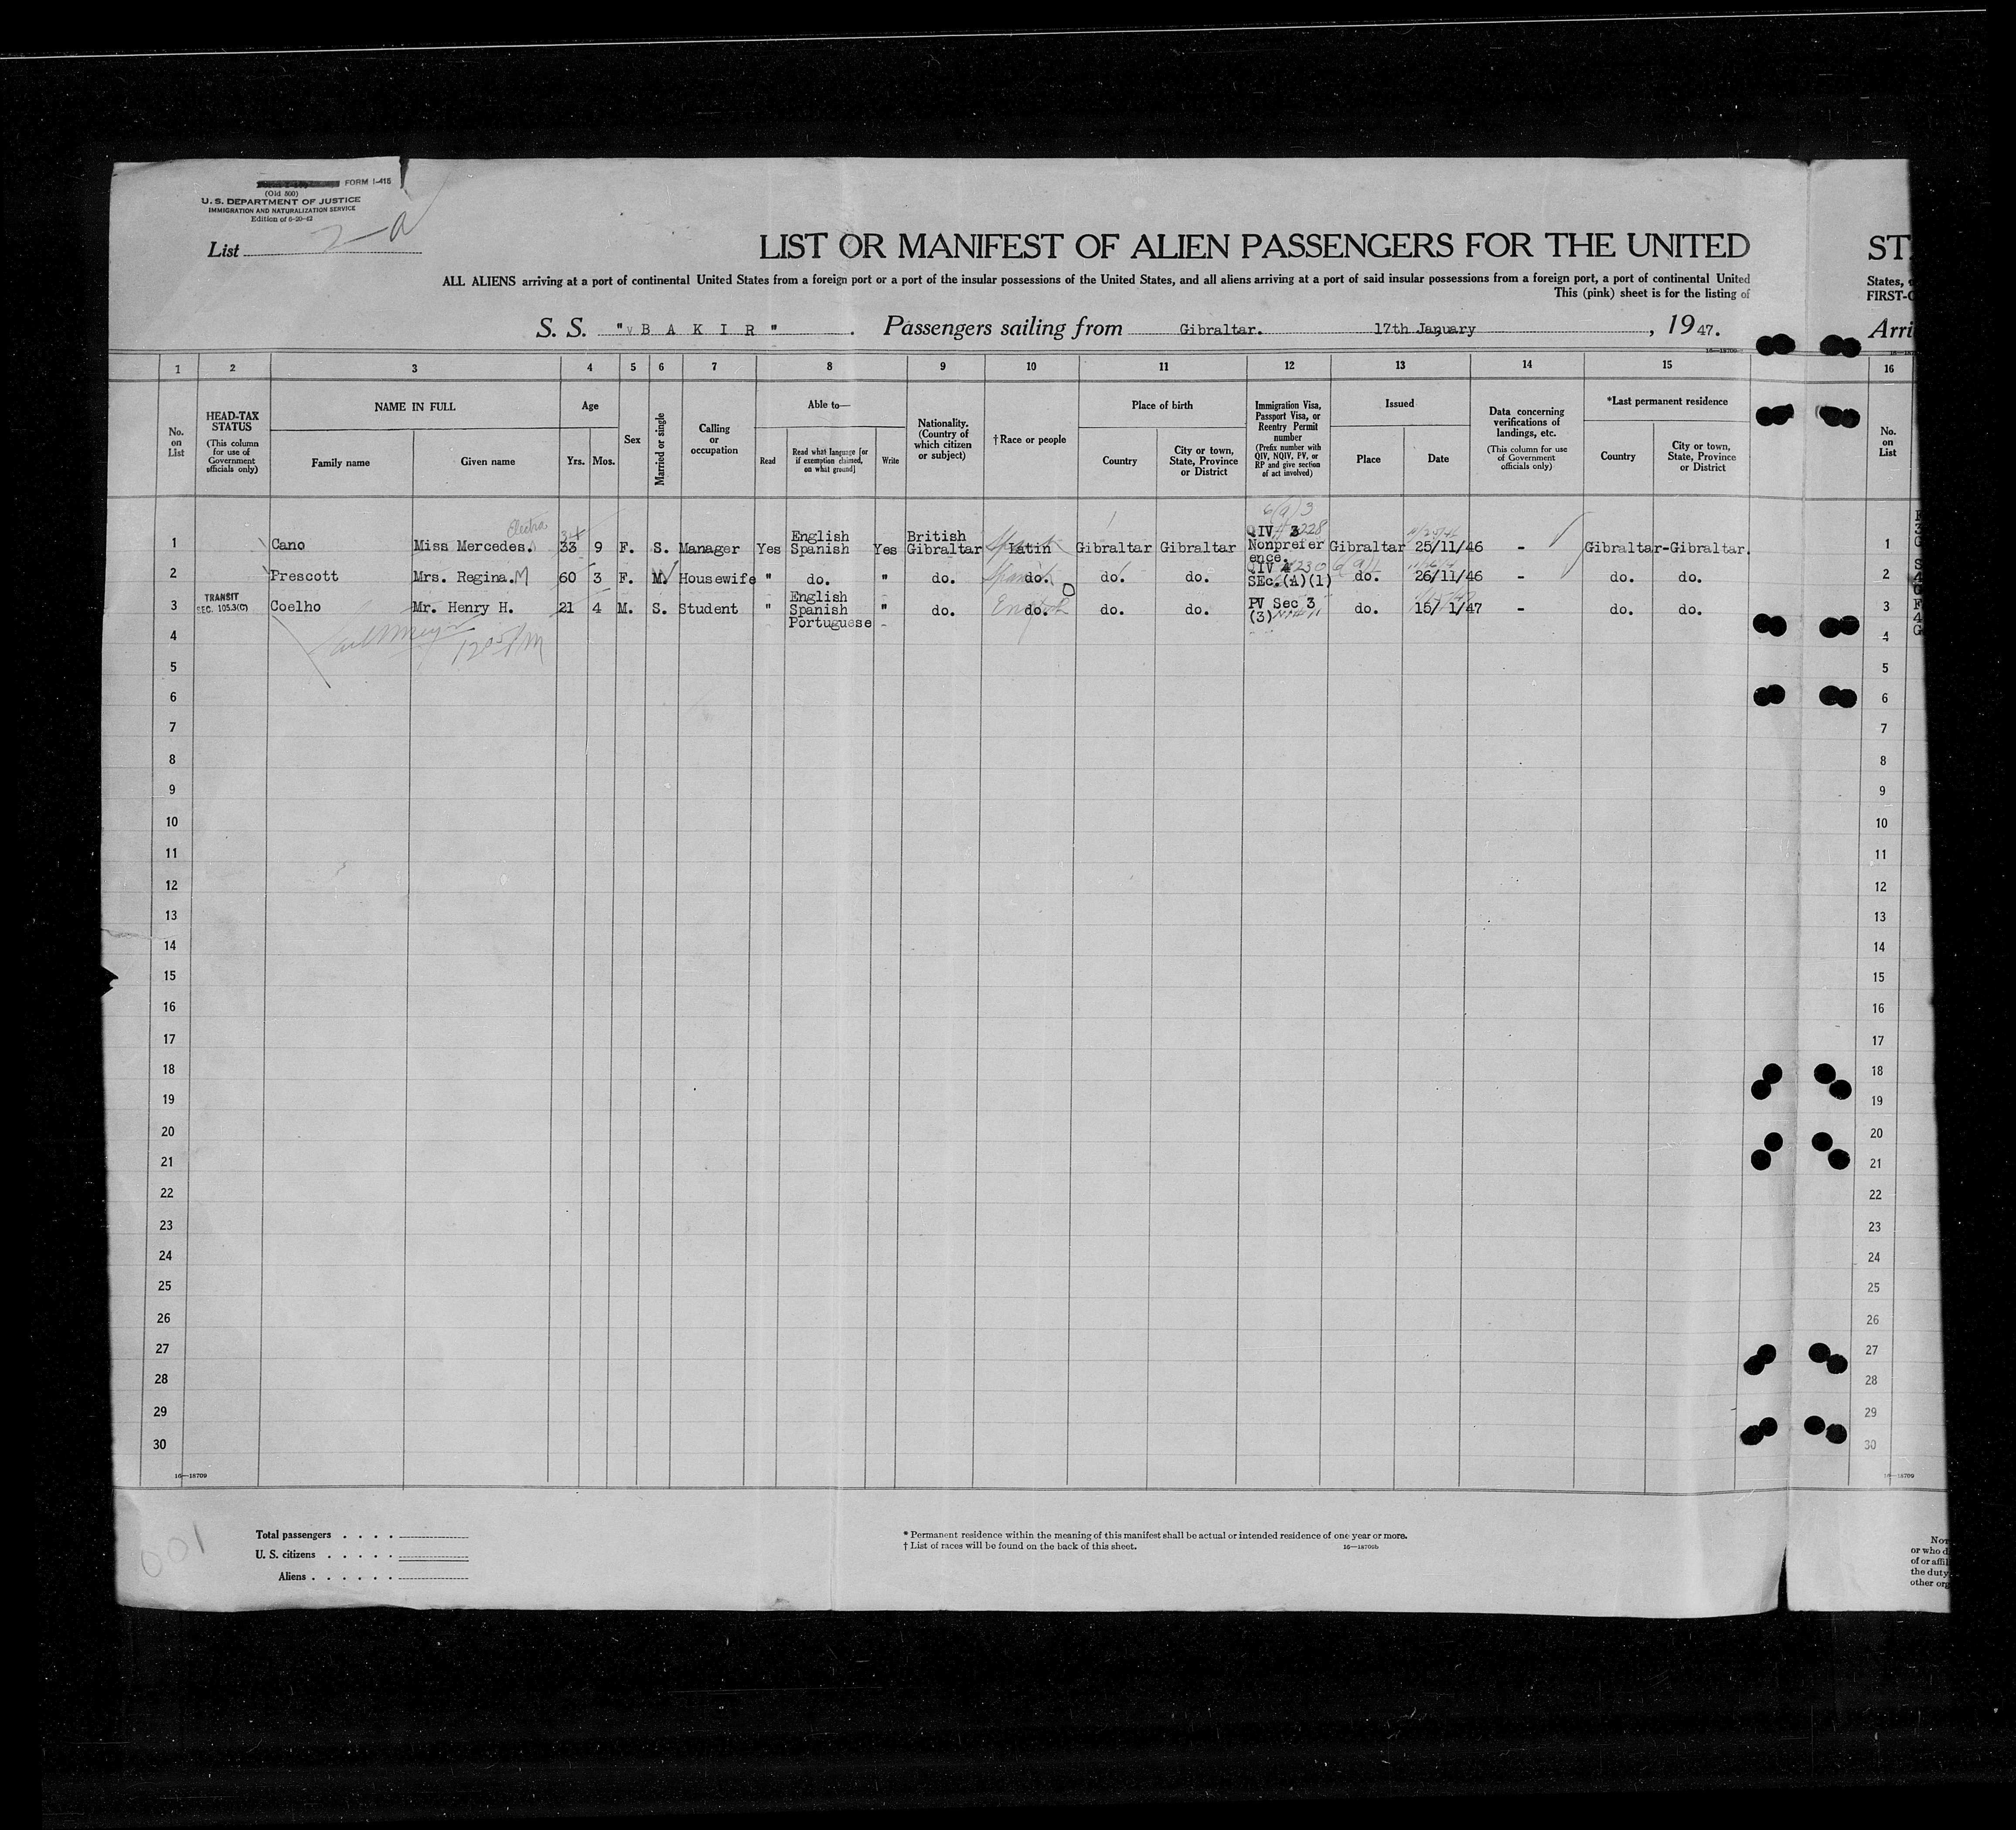 FORM I-415
(Old 500)
U. S. DEPARTMENT OF JUSTICE
IMMIGRATION AND NATURALIZATION SERVICE
Edition of 6-20-42
List 2-a
LIST OR MANIFEST OF ALIEN PASSENGERS FOR THE UNITED
ALL ALIENS arriving at a port of continental United States from a foreign port or a port of the insular possessions of the United States, and all aliens arriving at a port of said insular possessions from a foreign port, a port of continental United
This (pink) sheet is for the listing of
S. S. "BAKIR" Passengers sailing from Gibraltar. 17th January, 1947.
ST
States,
FIRST-C
Arri
16—18709
1 2 3 4 5 6 7 8 9 10 11 12 13 14 15 16
No. on List
HEAD-TAX STATUS
(This column for use of Government officials only)
NAME IN FULL
Family name Given name
Age
Yrs. Mos.
Sex
Married or single
Calling or occupation
Able to—
Read Read what language [or if exemption claimed, on what ground] Write
Nationality. (Country of which citizen or subject)
†Race or people
Place of birth
Country City or town, State, Province or District
Immigration Visa, Passport Visa, or Reentry Permit number
(Prefix number with QIV, NQIV, PV, or RP and give section of act involved)
Issued
Place Date
Data concerning verifications of landings, etc.
(This column for use of Government officials only)
*Last permanent residence
Country City or town, State, Province or District
No. on List
Electra
6(a)3
1 Cano Miss Mercedes. 33 9 F. S. Manager Yes English Spanish Yes British Gibraltar Latin Gibraltar Gibraltar QIV 3 Nonpreference. Gibraltar 25/11/46 - Gibraltar-Gibraltar. 1
2 Prescott Mrs. Regina. M 60 3 F. M. Housewife " do. " do. do. do. do. QIV SEc.(A)(1) do. 26/11/46 - do. do. 2
TRANSIT SEC. 105.3(C)
3 Coelho Mr. Henry H. 21 4 M. S. Student " English Spanish Portuguese " do. English do. do. do. PV Sec 3 (3) do. 15/ 1/47 - do. do. 3
1205 PM
4 4
5 5
6 6
7 7
8 8
9 9
10 10
11 11
12 12
13 13
14 14
15 15
16 16
17 17
18 18
19 19
20 20
21 21
22 22
23 23
24 24
25 25
26 26
27 27
28 28
29 29
30 30
16—18709 16—18709
001
Total passengers . . . .
U. S. citizens . . . . .
Aliens . . . . . .
* Permanent residence within the meaning of this manifest shall be actual or intended residence of one year or more.
† List of races will be found on the back of this sheet. 16—18709b
Not
or who d
of or affil
the duty
other org